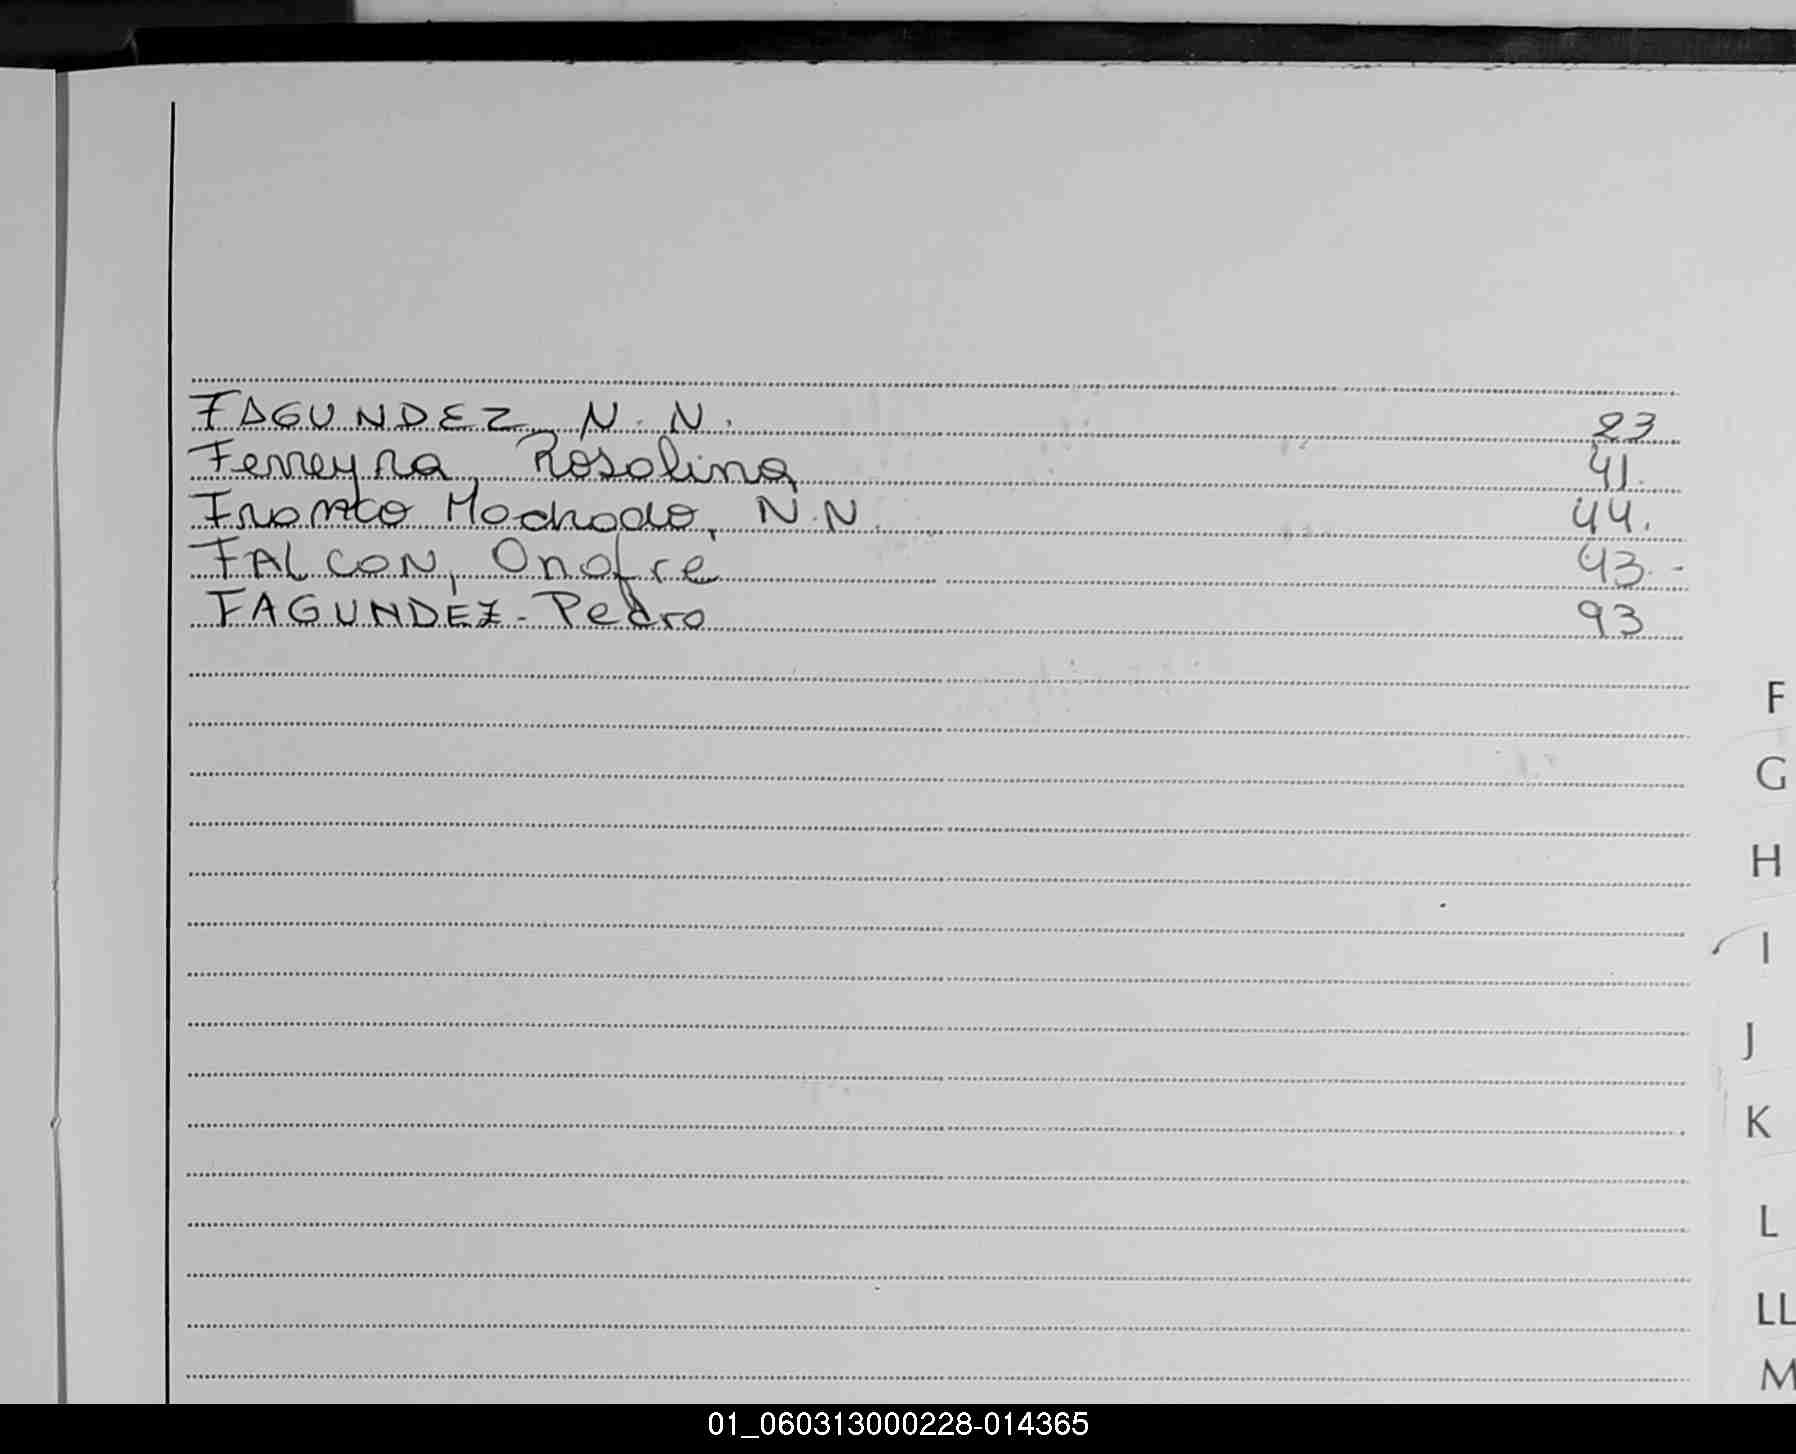 FAGUNDEZ N. N. 23
Ferreyra, Rosalina 41.
Franco Machado, N.N. 44.
FALCON, Onofre 43.-
FAGUNDEZ- Pedro 93
F
G
H
I
J
K
L
LL
M
01_060313000228-014365